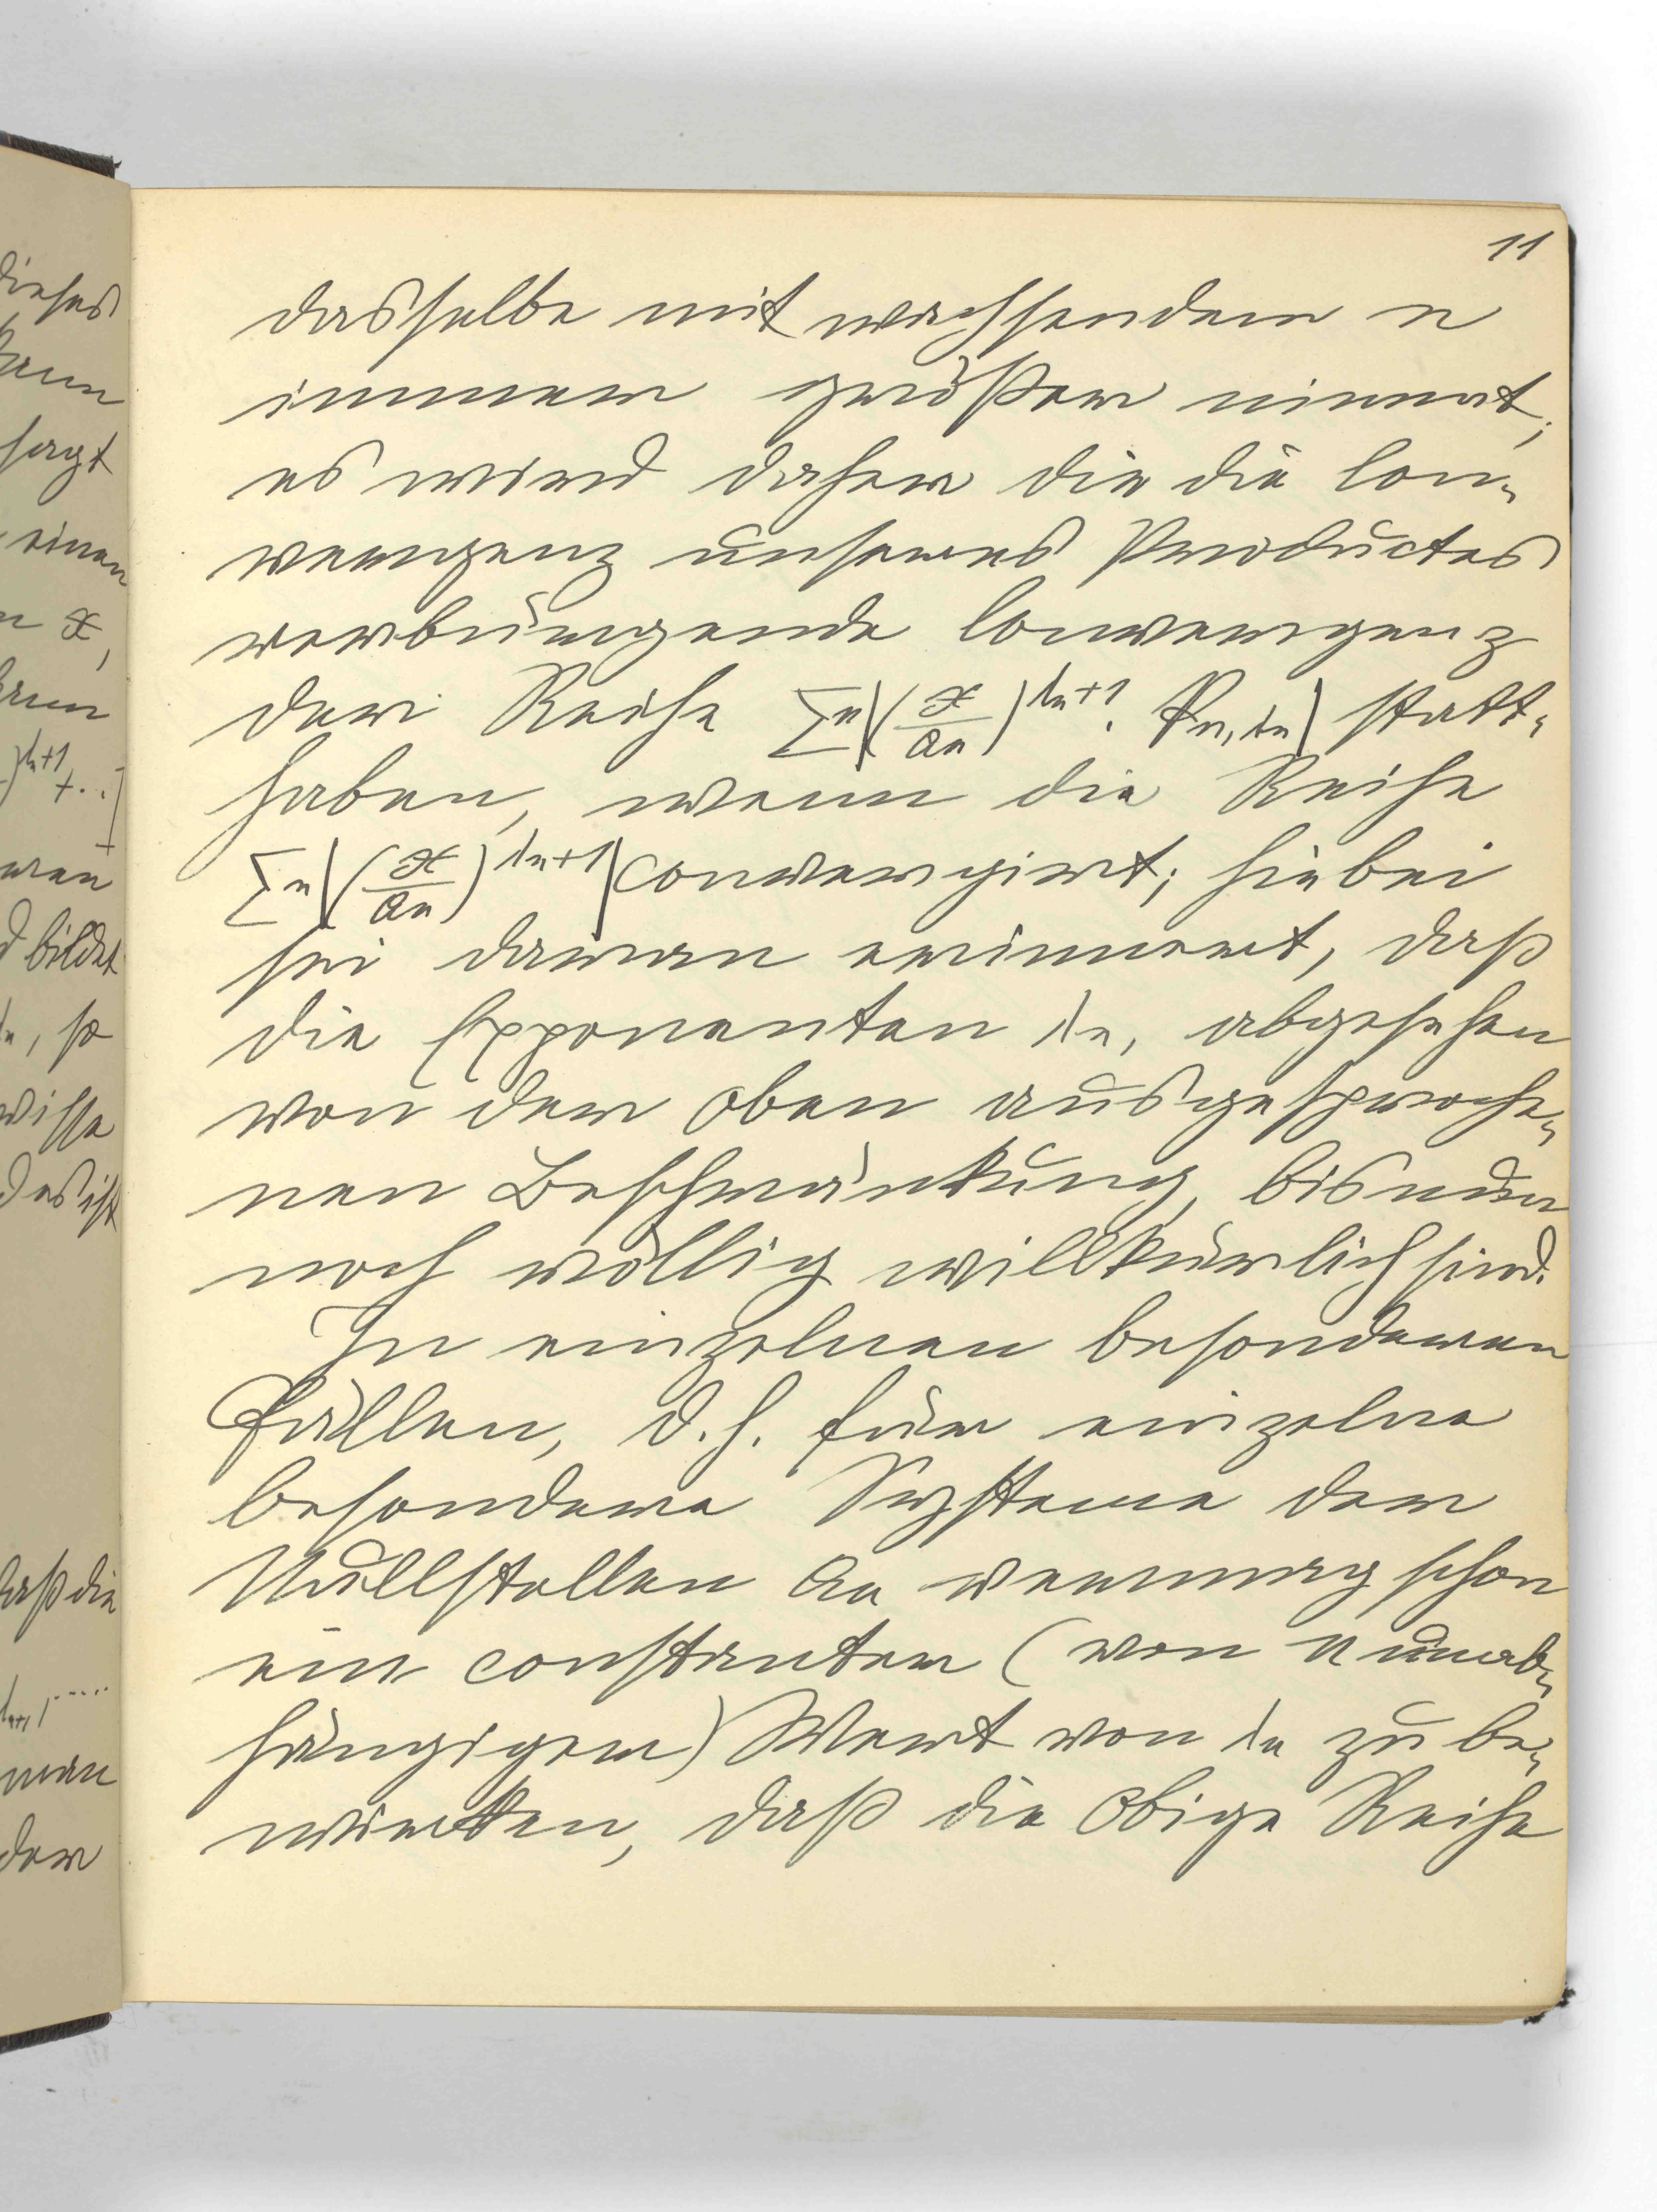 11
dasselbe mit wachsendem n
immer größer nimmt;
es wird daher die die Con-
vergenz unseres Productes
verbürgende Convergenz
der Reihe Σn|(x/an)^λn+1 . Pn,λn| statt-
haben, wenn die Reihe
Σn|(x/an)^λn+1| convergirt; hiebei
sei daran erinnert, daß
die Exponenten λn, abgesehen
von der oben ausgesproche-
nen Beschränkung, bisnun
noch völlig willkürlich sind.
In einzelnen besonderen
Fällen, d.h. für einzelne
besondere Systeme der
Nullstellen an vermag schon
ein constanter (von n unab-
hängiger) Wert von λn zu be-
wirken, daß die obige Reihe
dieses
sagt
einen
x,
)^λn+1 + ..]
bildet
λn, so
das ist
daß die
man
der